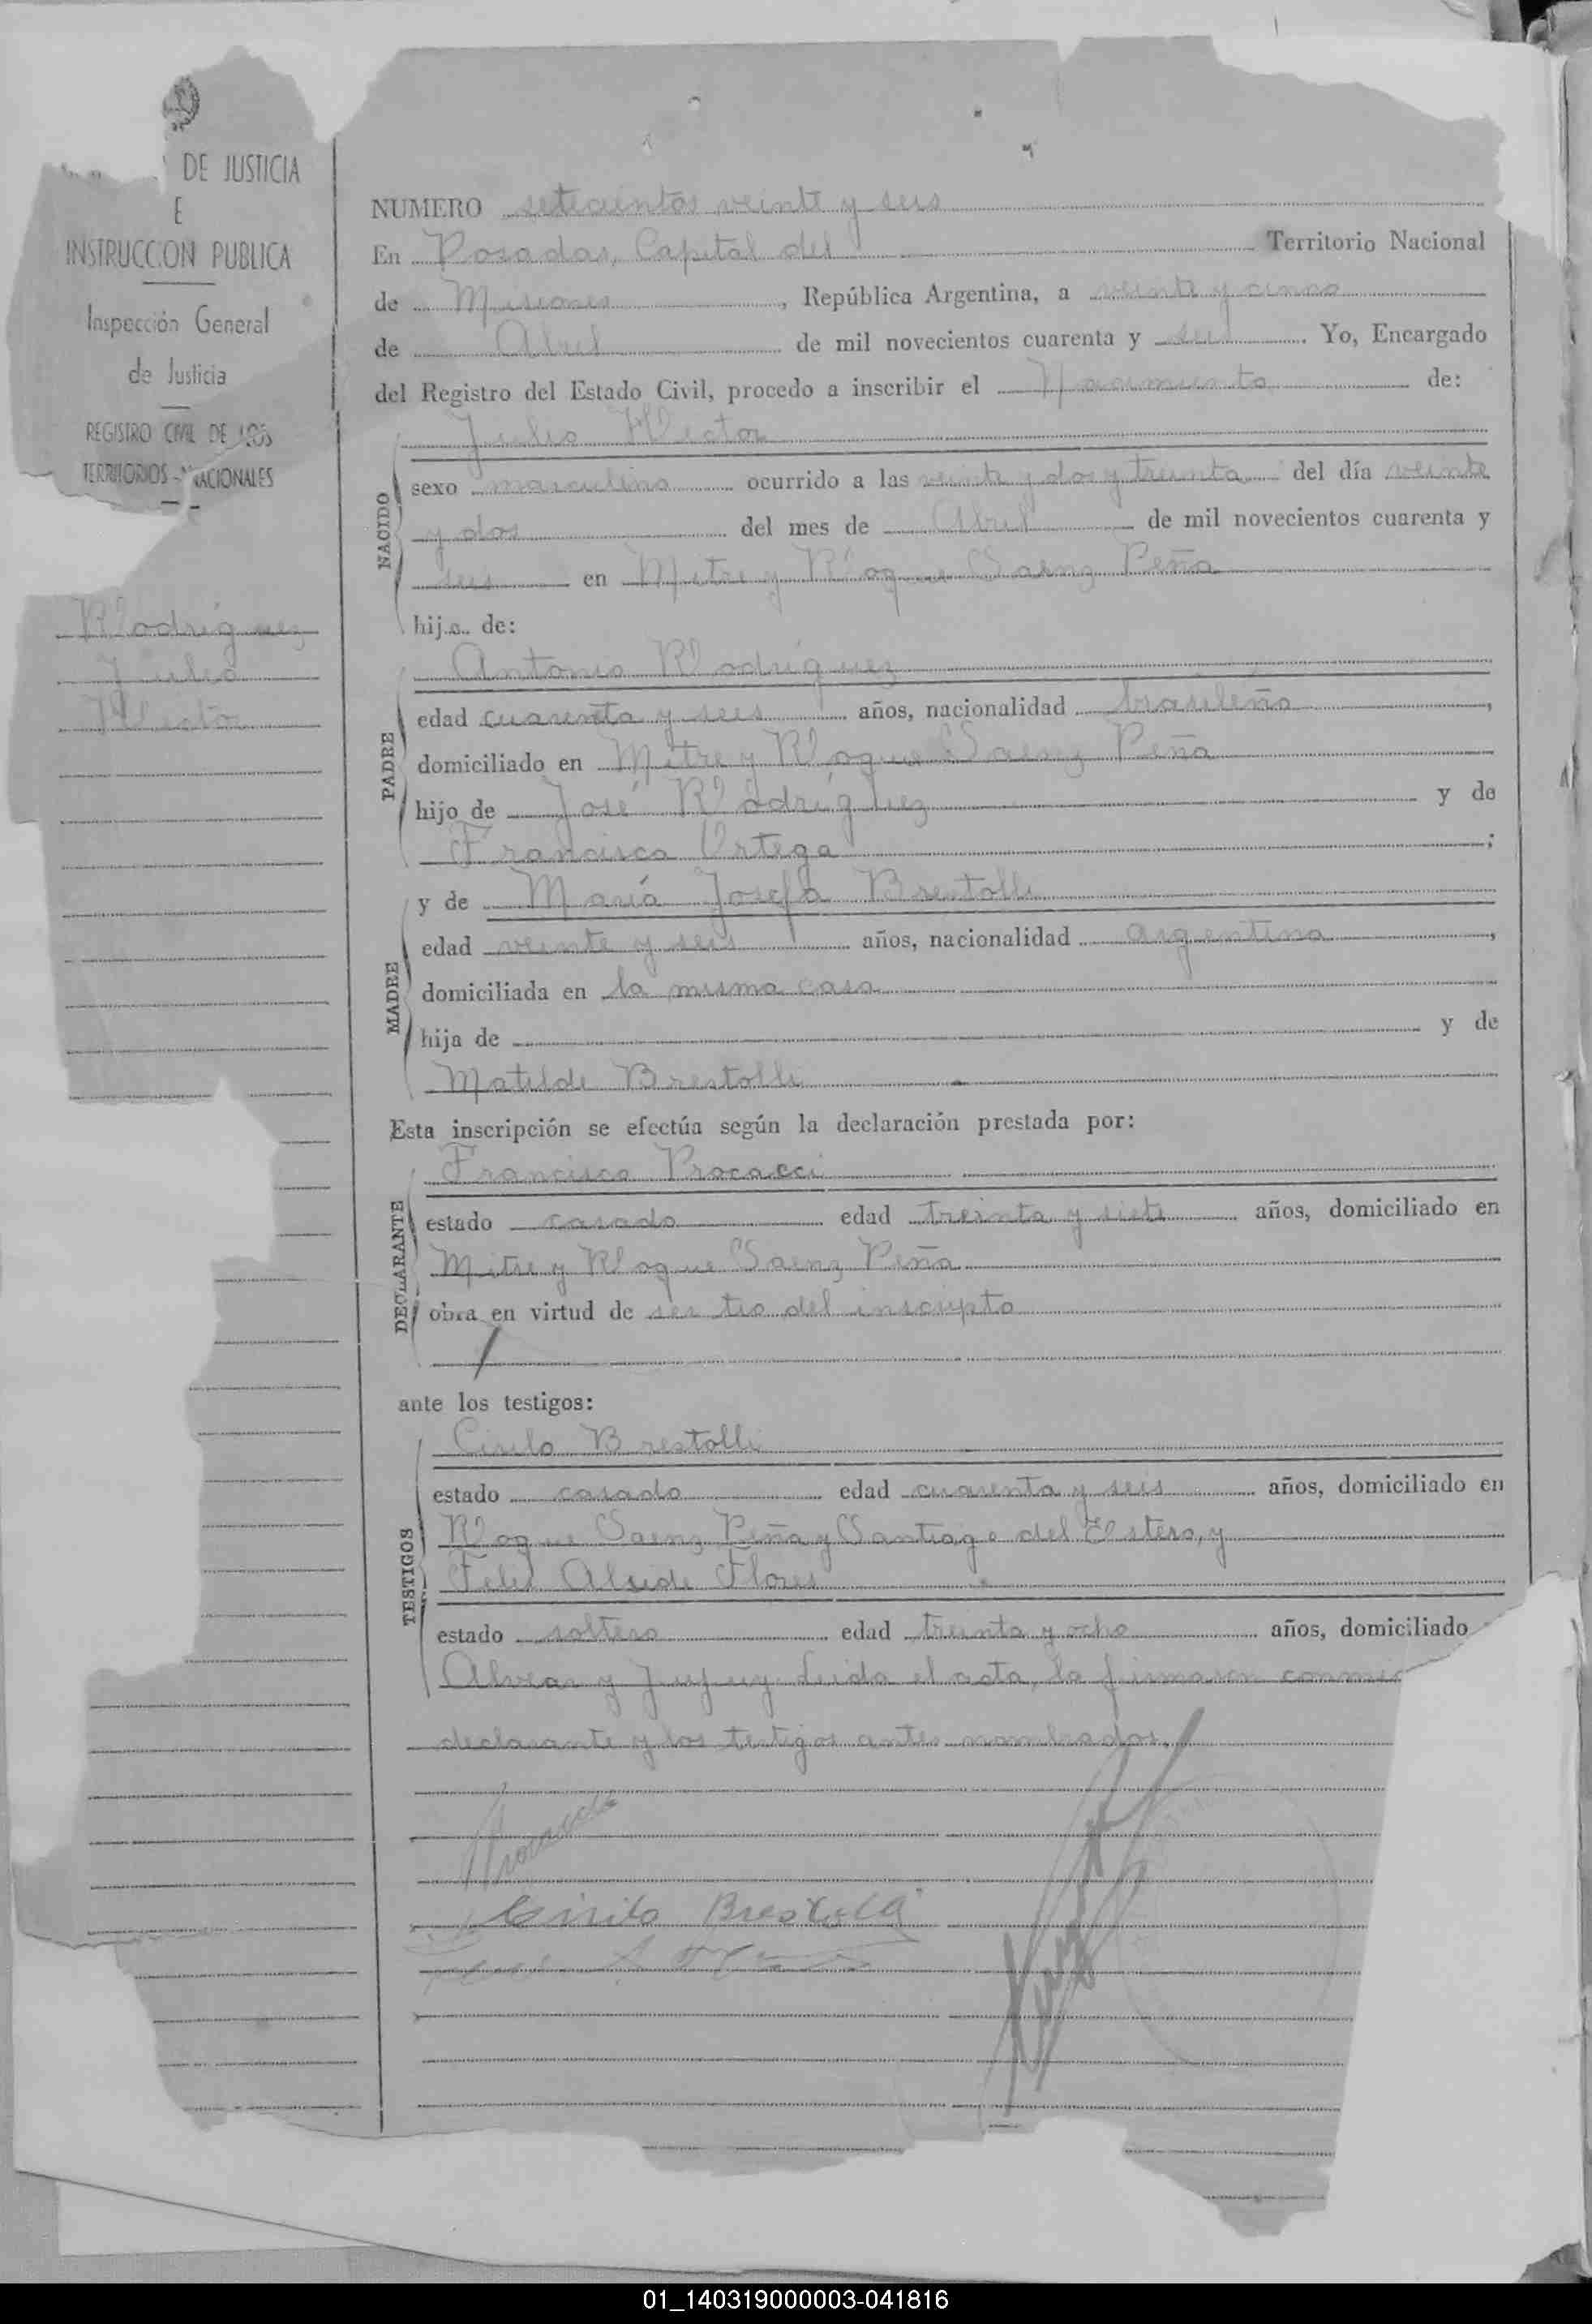 DE JUSTICIA
E
INSTRUCCION PUBLICA
Inspección General
de Justicia
REGISTRO CIVIL DE LOS
TERRITORIOS NACIONALES
Rodriguez
Julio
Hector
NUMERO setecientos veinte y seis
En Posadas, Capital del Territorio Nacional
de Misiones, República Argentina, a veinte y cinco
de Abril de mil novecientos cuarenta y seis. Yo, Encargado
del Registro del Estado Civil, procedo a inscribir el Nacimiento de:
Julio Hector
NACIDO
sexo masculino ocurrido a las veinte y dos y treinta del día veinte
y dos del mes de Abril de mil novecientos cuarenta y
seis en Mitre y Roque Saenz Peña
hijo de:
Antonio Rodríguez
PADRE
edad cuarenta y seis años, nacionalidad brasileño,
domiciliado en Mitre y Roque Saenz Peña
hijo de José Rodríguez y de
Francisca Ortega;
y de María Josefa Brestolli
MADRE
edad veinte y seis años, nacionalidad argentina,
domiciliada en la misma casa
hija de y de
Matilde Brestolli
Esta inscripción se efectúa según la declaración prestada por:
Francisco Procacci
DECLARANTE
estado casado edad treinta y siete años, domiciliado en
Mitre y Roque Saenz Peña
obra en virtud de ser tio del inscripto
ante los testigos:
Cirilo Brestolli
TESTIGOS
estado casado edad cuarenta y seis años, domiciliado en
Roque Saenz Peña y Santiago del Estero, y
Felix Alcide Flores
estado soltero edad treinta y ocho años, domiciliado
Alvear y Jujuy. Leida el acta, la firmaron conmi
declarante y los testigos antes nombrados.
Procacci
Cirilo Brestolli
01_140319000003-041816